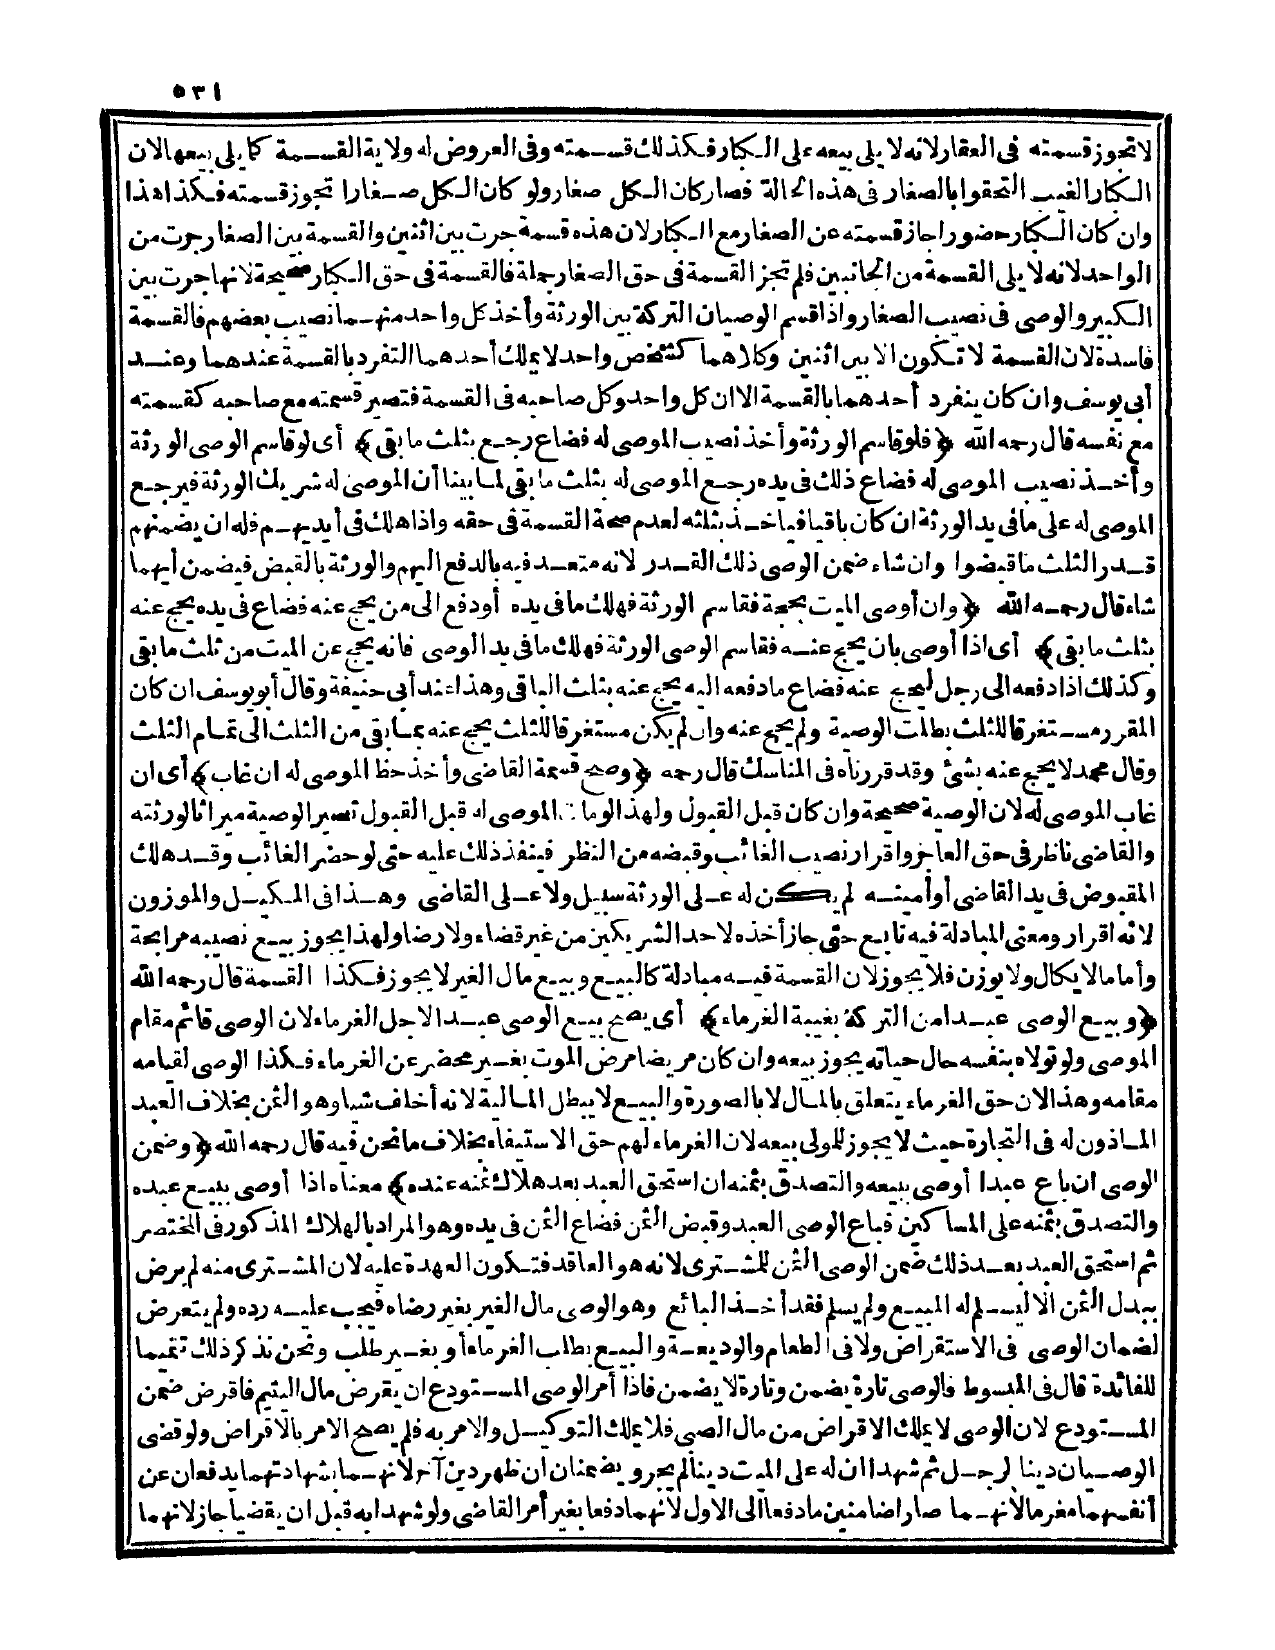 ٥٣١
لا تجوز قسمته فى العقار لانه لا يلى بيعه على الكبار فكذلك قسمته وفى العروض له ولاية القسمة كما يلى بيعها لان
الكبار الغيب التحقوا بالصغار فى هذه الحالة فصار كان الكل صغار ولو كان الكل صغارا تجوز قسمته فكذا هذا
وان كان الكبار حضورا جاز قسمته عن الصغار مع الكبار لان هذه قسمة جرت بين اثنين والقسمة بين الصغار جرت من
الواحد لانه لا يلى القسمة من الجانبين فلم تجز القسمة فى حق الصغار جملة فالقسمة فى حق الكبار صحيحة لانها جرت بين
الكبير والوصى فى نصيب الصغار واذا قسم الوصيان التركة بين الورثة وأخذ كل واحد منهما نصيب بعضهم فالقسمة
فاسدة لان القسمة لا تكون الا بين اثنين وكلاهما كشخص واحد لا يملك أحدهما التفرد بالقسمة عندهما وعند
أبى يوسف وان كان ينفرد أحدهما بالقسمة الا ان كل واحد وكل صاحبه فى القسمة فتصير قسمته مع صاحبه كقسمته
مع نفسه قال رحمه الله ﴿فلو قاسم الورثة وأخذ نصيب الموصى له فضاع رجع بثلث ما بقى﴾ أى لو قاسم الوصى الورثة
وأخذ نصيب الموصى له فضاع ذلك فى يده رجع الموصى له بثلث ما بقى لما بينا أن الموصى له شريك الورثة فيرجع
الموصى له على ما فى يد الورثة ان كان باقيا فيأخذ بثلثه لعدم صحة القسمة فى حقه واذا هلك فى أيديهم فله ان يضمنهم
قدر الثلث ما قبضوا وان شاء ضمن الوصى ذلك القدر لانه متعد فيه بالدفع اليهم والورثة بالقبض فيضمن أيهما
شاء قال رحمه الله ﴿وان أوصى الميت بحجة فقاسم الورثة فهلك ما فى يده أو دفع الى من يحج عنه فضاع فى يده يحج عنه
بثلث ما بقى﴾ أى اذا أوصى بان يحج عنه فقاسم الوصى الورثة فهلك ما فى يد الوصى فانه يحج عن الميت من ثلث ما بقى
وكذلك اذا دفعه الى رجل ليحج عنه فضاع ما دفعه اليه يحج عنه بثلث الباقى وهذا عند أبى حنيفة وقال أبو يوسف ان كان
المقرر مستغرقا للثلث بطلت الوصية ولم يحج عنه وان لم يكن مستغرقا للثلث يحج عنه بما بقى من الثلث الى تمام الثلث
وقال محمد لا يحج عنه بشئ وقد قررناه فى المناسك قال رحمه ﴿وصح قسمة القاضى وأخذ حظ الموصى له ان غاب﴾ أى ان
غاب الموصى له لان الوصية صحيحة وان كان قبل القبول ولهذا لو مات الموصى له قبل القبول تصير الوصية ميراثا لورثته
والقاضى ناظر فى حق العاجز واقرار نصيب الغائب وقبضه من النظر فينفذ ذلك عليه حتى لو حضر الغائب وقد هلك
المقبوض فى يد القاضى أو أمينه لم يكن له على الورثة سبيل ولا على القاضى وهذا فى المكيل والموزون
لانه اقرار ومعنى المبادلة فيه تابع حتى جاز أخذه لاحد الشريكين من غير قضاء ولا رضا ولهذا يجوز بيع نصيبه مرابحة
وأما ما لا يكال ولا يوزن فلا يجوز لان القسمة فيه مبادلة كالبيع وبيع مال الغير لا يجوز فكذا القسمة قال رحمه الله
﴿وبيع الوصى عبدا من التركة بغيبة الغرماء﴾ أى يصح بيع الوصى عبدا لاجل الغرماء لان الوصى قائم مقام
الموصى ولو تولاه بنفسه حال حياته يجوز بيعه وان كان مريضا مرض الموت بغير محضر عن الغرماء فكذا الوصى لقيامه
مقامه وهذا لان حق الغرماء يتعلق بالمال لا بالصورة والبيع لا يبطل المالية لانه أخلف شيأ وهو الثمن بخلاف العبد
المأذون له فى التجارة حيث لا يجوز للمولى بيعه لان الغرماء لهم حق الاستيفاء بخلاف ما نحن فيه قال رحمه الله ﴿وضمن
الوصى ان باع عبدا أوصى ببيعه والتصدق بثمنه ان استحق العبد بعد هلاك ثمنه عنده﴾ معناه اذا أوصى ببيع عبده
والتصدق بثمنه على المساكين فباع الوصى العبد وقبض الثمن فضاع الثمن فى يده وهو المراد بالهلاك المذكور فى المختصر
ثم استحق العبد بعد ذلك ضمن الوصى الثمن للمشترى لانه هو العاقد فتكون العهدة عليه لان المشترى منه لم يرض
ببدل الثمن الا ليسلم له المبيع ولم يسلم فقد أخذ البائع وهو الوصى مال الغير بغير رضاه فيجب عليه رده ولم يتعرض
لضمان الوصى فى الاستقراض ولا فى الطعام والوديعة والبيع بطلب الغرماء أو بغير طلب ونحن نذكر ذلك تتميما
للفائدة قال فى المبسوط فالوصى تارة يضمن وتارة لا يضمن فاذا أمر الوصى المستودع ان يقرض مال اليتيم فاقرض ضمن
المستودع لان الوصى لا يملك الاقراض من مال الصبى فلا يملك التوكيل والامر به فلم يصح الامر بالاقراض ولو قضى
الوصيان دينا لرجل ثم شهدا ان له على الميت دينا لم يجز ويضمنان ان ظهر دين آخر لانهما بشهادتهما يدفعان عن
أنفسهما مغرما لانهما صارا ضامنين ما دفعا الى الاول لانهما دفعا بغير أمر القاضى ولو شهدا به قبل ان يقضيا جاز لانهما